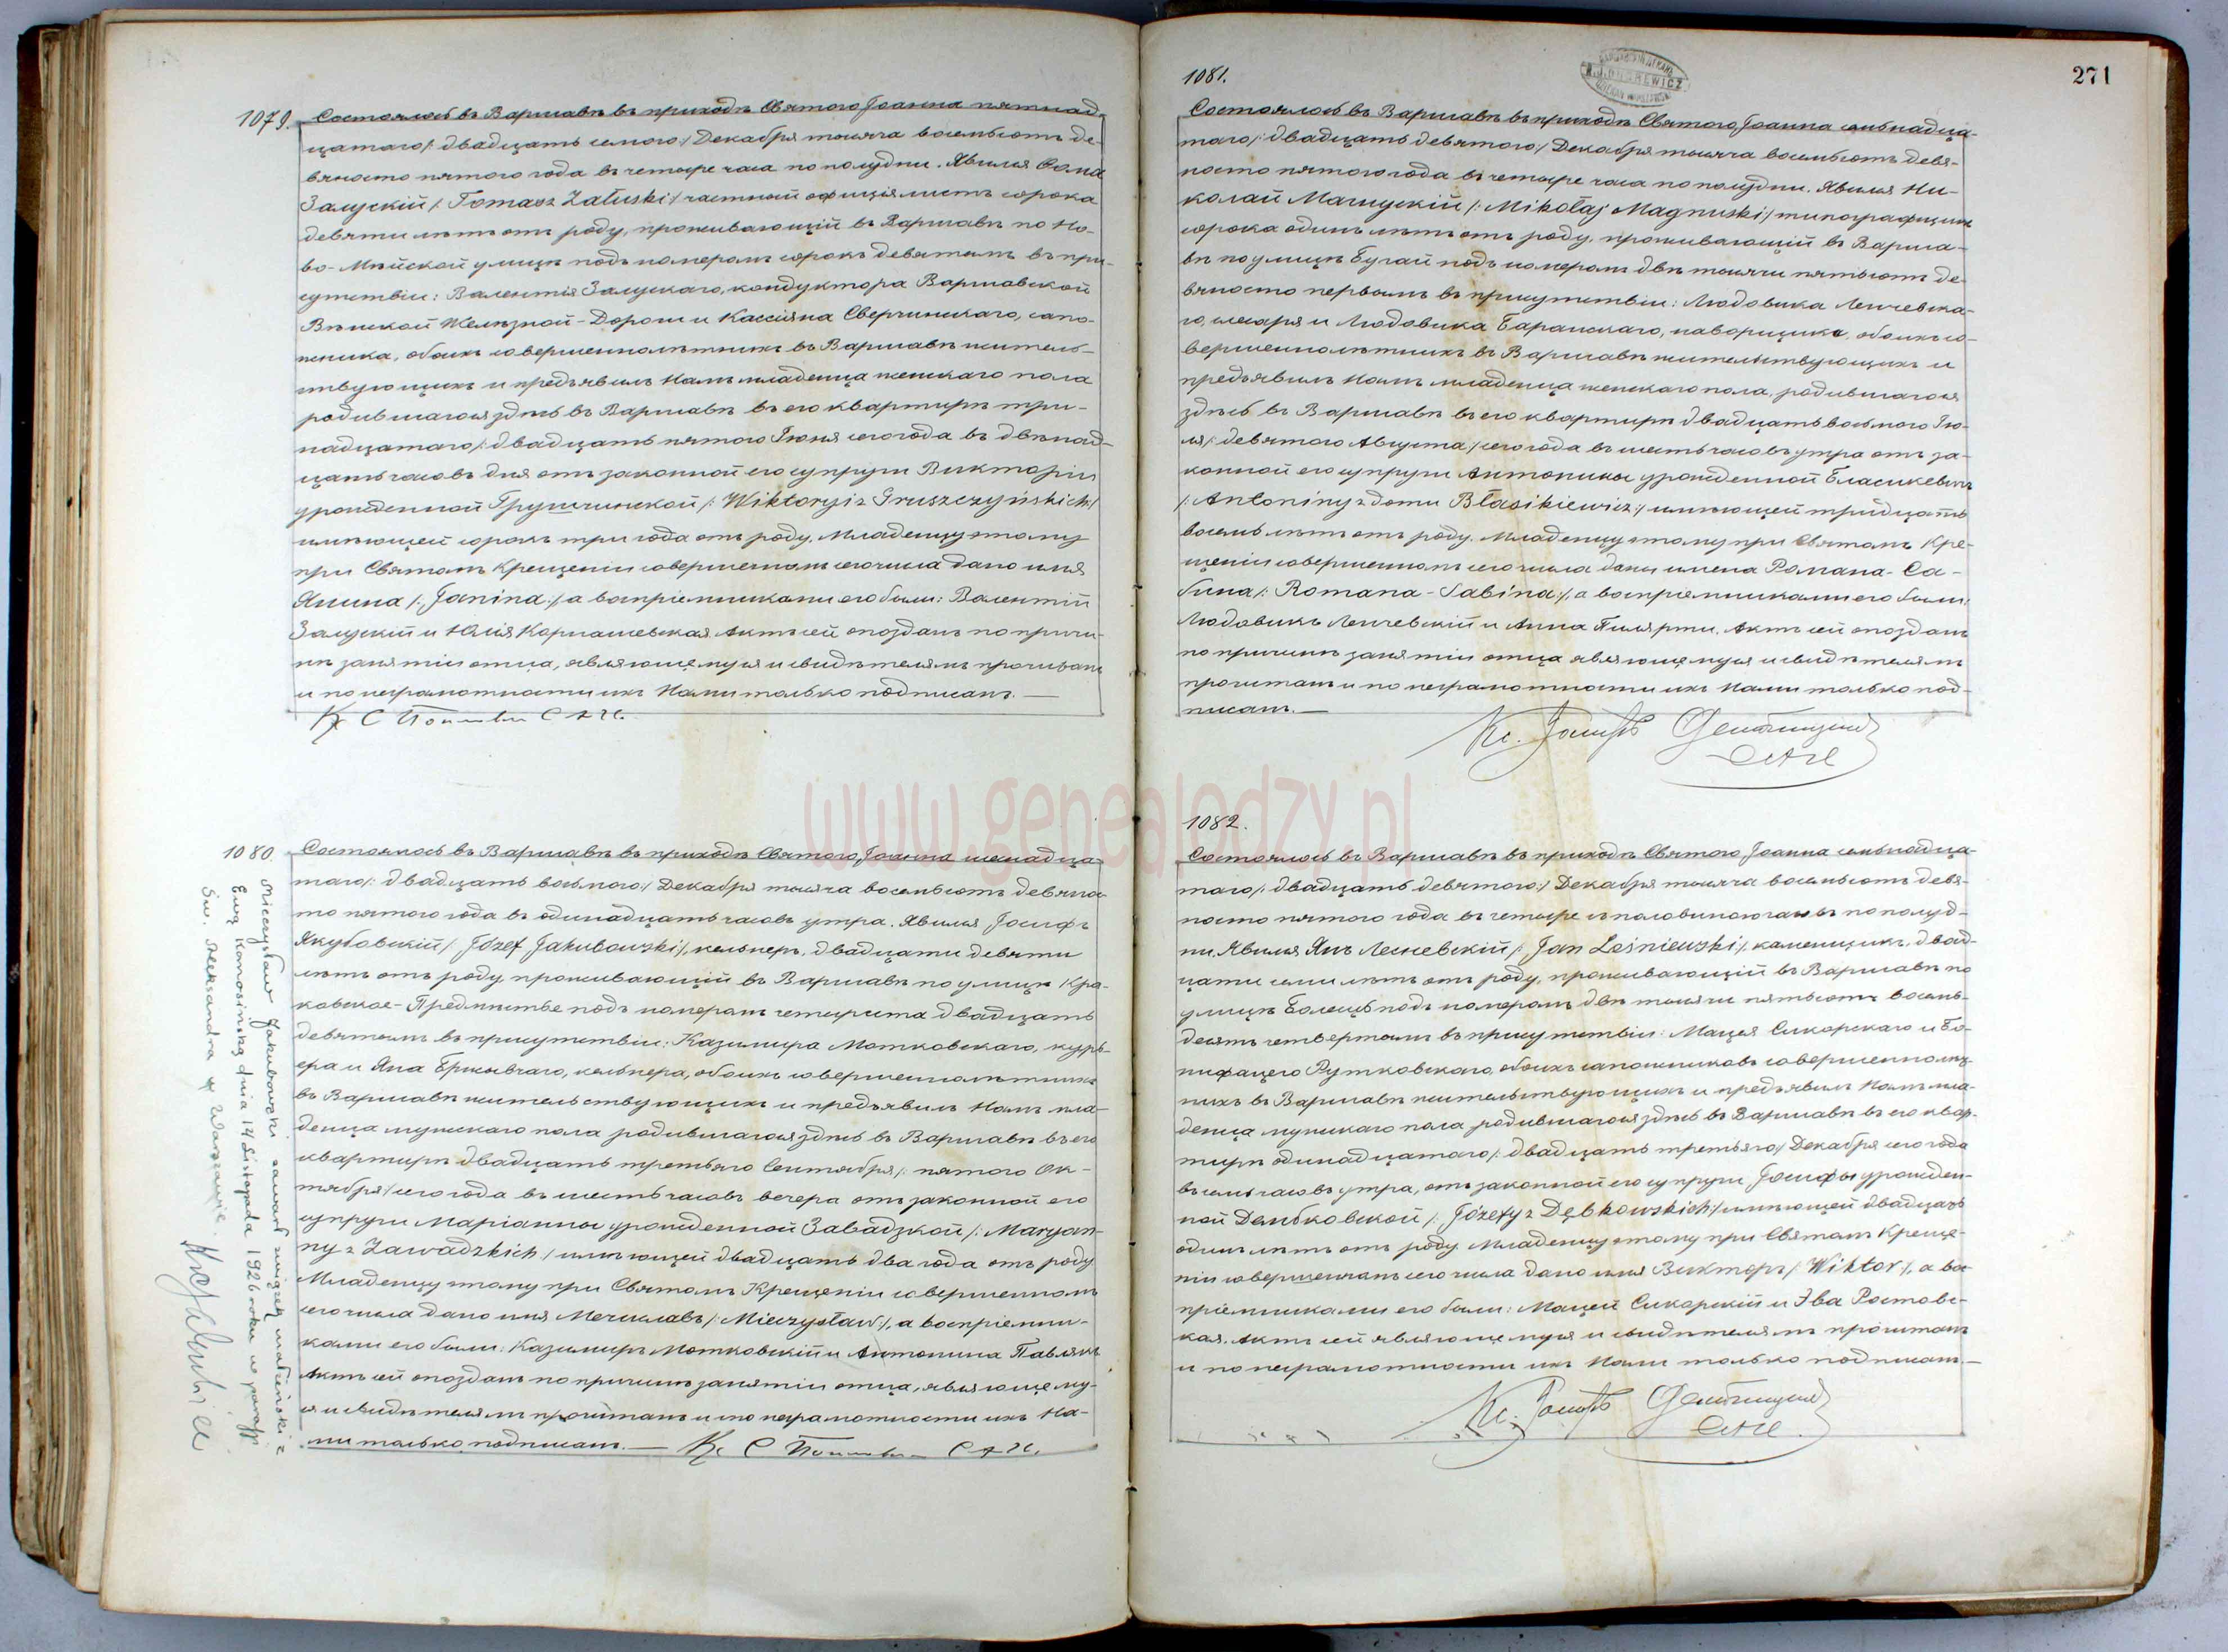 1079. Состоялось въ Варшавѣ въ приходѣ Святого Іоанна пятнад-
цатаго /: двадцать седьмого :/ Декабря тысяча восемьсотъ де-
вяносто пятого года въ четыре часа по полудни. Явился Ѳома
Залускій /: Tomasz Załuski :/ частный офиціалистъ сорока
девяти лѣтъ отъ роду, проживающій въ Варшавѣ по Но-
во-Мѣйской улицѣ подъ номеромъ сорокъ девятымъ въ при-
сутствіи: Валентія Залускаго, кондуктора Варшавской
Вѣнской Желѣзной-Дороги и Кассіяна Сверчинскаго, сапо-
жника, обоихъ совершеннолѣтнихъ въ Варшавѣ житель-
ствующихъ и предъявилъ Намъ младенца женскаго пола
родившагося здѣсь въ Варшавѣ въ его квартирѣ три-
надцатаго /: двадцать пятого Іюня сего года въ двѣнад-
цать часовъ дня отъ законной его супруги Викторіи
урожденной Грущинской /: Wiktoryi z Gruszczyńskich :/
имѣющей сорокъ три года отъ роду. Младенцу этому
при Святомъ Крещеніи совершенномъ сего числа дано имя
Янина /: Janina :/, а воспріемниками его были: Валентій
Залускій и Юлія Кармашевская. Актъ сей опозданъ по причи-
нѣ занятіи отца, являющемуся и свидѣтелямъ прочитанъ
и по неграмотности ихъ Нами только подписанъ. —
Кс С САИ.
1080. Состоялось въ Варшавѣ въ приходѣ Святого Іоанна шеснадца-
таго /: двадцать восьмого :/ Декабря тысяча восемьсотъ девяно-
сто пятого года въ одинадцать часовъ утра. Явился Іосифъ
Якубовскій /: Józef Jakubowski :/, кельнеръ, двадцати девяти
лѣтъ отъ роду проживающій въ Варшавѣ по улицѣ Кра-
ковское-Предмѣстье подъ номеромъ четыреста двадцать
девятымъ въ присутствіи: Казимира Мотковскаго, курь-
ера и Яна кельнера, обоихъ совершеннолѣтнихъ
въ Варшавѣ жительствующихъ и предъявилъ Намъ мла-
денца мужскаго пола родившагося здѣсь въ Варшавѣ въ его
квартирѣ двадцать третьяго Сентября /: пятого Ок-
тября :/ сего года въ шесть часовъ вечера отъ законной его
супруги Маріанны урожденной Завадзкой /: Maryan-
ny z Zawadzkich :/ имѣющей двадцать два года отъ роду
Младенцу этому при Святомъ Крещеніи совершенномъ
сего числа дано имя Мечиславъ /: Mieczysław :/, а воспріемни-
ками его были: Казимиръ Мотковскій и Антонина Павлякъ
Актъ сей опозданъ по причинѣ занятіи отца, являющему-
ся и свидѣтелямъ прочитанъ и по неграмотности ихъ На-
ми только подписанъ. — Кс С САИ.
Mieczysław Jakubowski zawarł związek małżeński z
Ewą Kamosińską dnia 14 listopada 1926 roku w parafji
Św. Aleksandra w Warszawie.
271
1081.
Состоялось въ Варшавѣ въ приходѣ Святого Іоанна семьнадца-
таго /: двадцать девятого :/ Декабря тысяча восемьсотъ девя-
носто пятого года въ четыре часа по полудни. Явился Ни-
колай Магнускій /: Mikołaj Magnuski :/ типографщикъ
сорока одинъ лѣтъ отъ роду, проживающій въ Варша-
вѣ по улицѣ Бугай подъ номеромъ двѣ тысячи пятьсотъ де-
вяносто первымъ въ присутствіи: Людовика Ленчевска-
го, слесаря и Людовика Баранскаго, наборщика, обоихъ со-
вершеннолѣтнихъ въ Варшавѣ жительствующихъ и
предъявилъ Намъ младенца женскаго пола, родившагося
здѣсь въ Варшавѣ въ его квартирѣ двадцать восьмого Ію-
ля /: девятого Августа :/ сего года въ шесть часовъ утра отъ за-
конной его супруги Антонины урожденной Бласикевичъ
/: Antoniny z domu Błasikiewicz :/ имѣющей тридцать
восемь лѣтъ отъ роду. Младенцу этому при Святомъ Кре-
щеніи совершенномъ сего числа даны имена Романа-Са-
бина /: Romana-Sabina :/, а воспріемниками его были:
Людовикъ Ленчевскій и Анна Актъ сей опозданъ
по причинѣ занятіи отца являющемуся и свидѣтелямъ
прочитанъ и по неграмотности ихъ Нами только под-
писанъ. —
Кс. Іосифъ САИ
1082.
Состоялось въ Варшавѣ въ приходѣ Святого Іоанна семьнадца-
таго /: двадцать девятого :/ Декабря тысяча восемьсотъ девя-
носто пятого года въ четыре съ половиною часовъ по полуд-
ни. Явился Янъ Лесневскій /: Jan Leśniewski :/, каменщикъ, двад-
цати семи лѣтъ отъ роду, проживающій въ Варшавѣ по
улицѣ Болесць подъ номеромъ двѣ тысячи пятьсотъ восемь-
десятъ четвертымъ въ присутствіи: Мацея Сикорскаго и Бо-
нифацего Рутковскаго, обоихъ сапожниковъ совершеннолѣт-
нихъ въ Варшавѣ жительствующихъ и предъявилъ Намъ мла-
денца мужскаго пола родившагося здѣсь въ Варшавѣ въ его квар-
тирѣ одинадцатаго /: двадцать третьяго :/ Декабря сего года
въ семь часовъ утра, отъ законной его супруги Іосифы урожден-
ной Дембковской /: Józefy z Dębkowskich :/ имѣющей двадцать
одинъ лѣтъ отъ роду. Младенцу этому при Святомъ Креще-
ніи совершенномъ сего числа дано имя Викторъ /: Wiktor :/, а вос-
пріемниками его были: Мацей Сикорскій и Эва Ростовс-
кая. Актъ сей являющемуся и свидѣтелямъ прочитанъ
и по неграмотности ихъ Нами только подписанъ. —
Кс. Іосифъ САИ.
www.genealodzy.pl